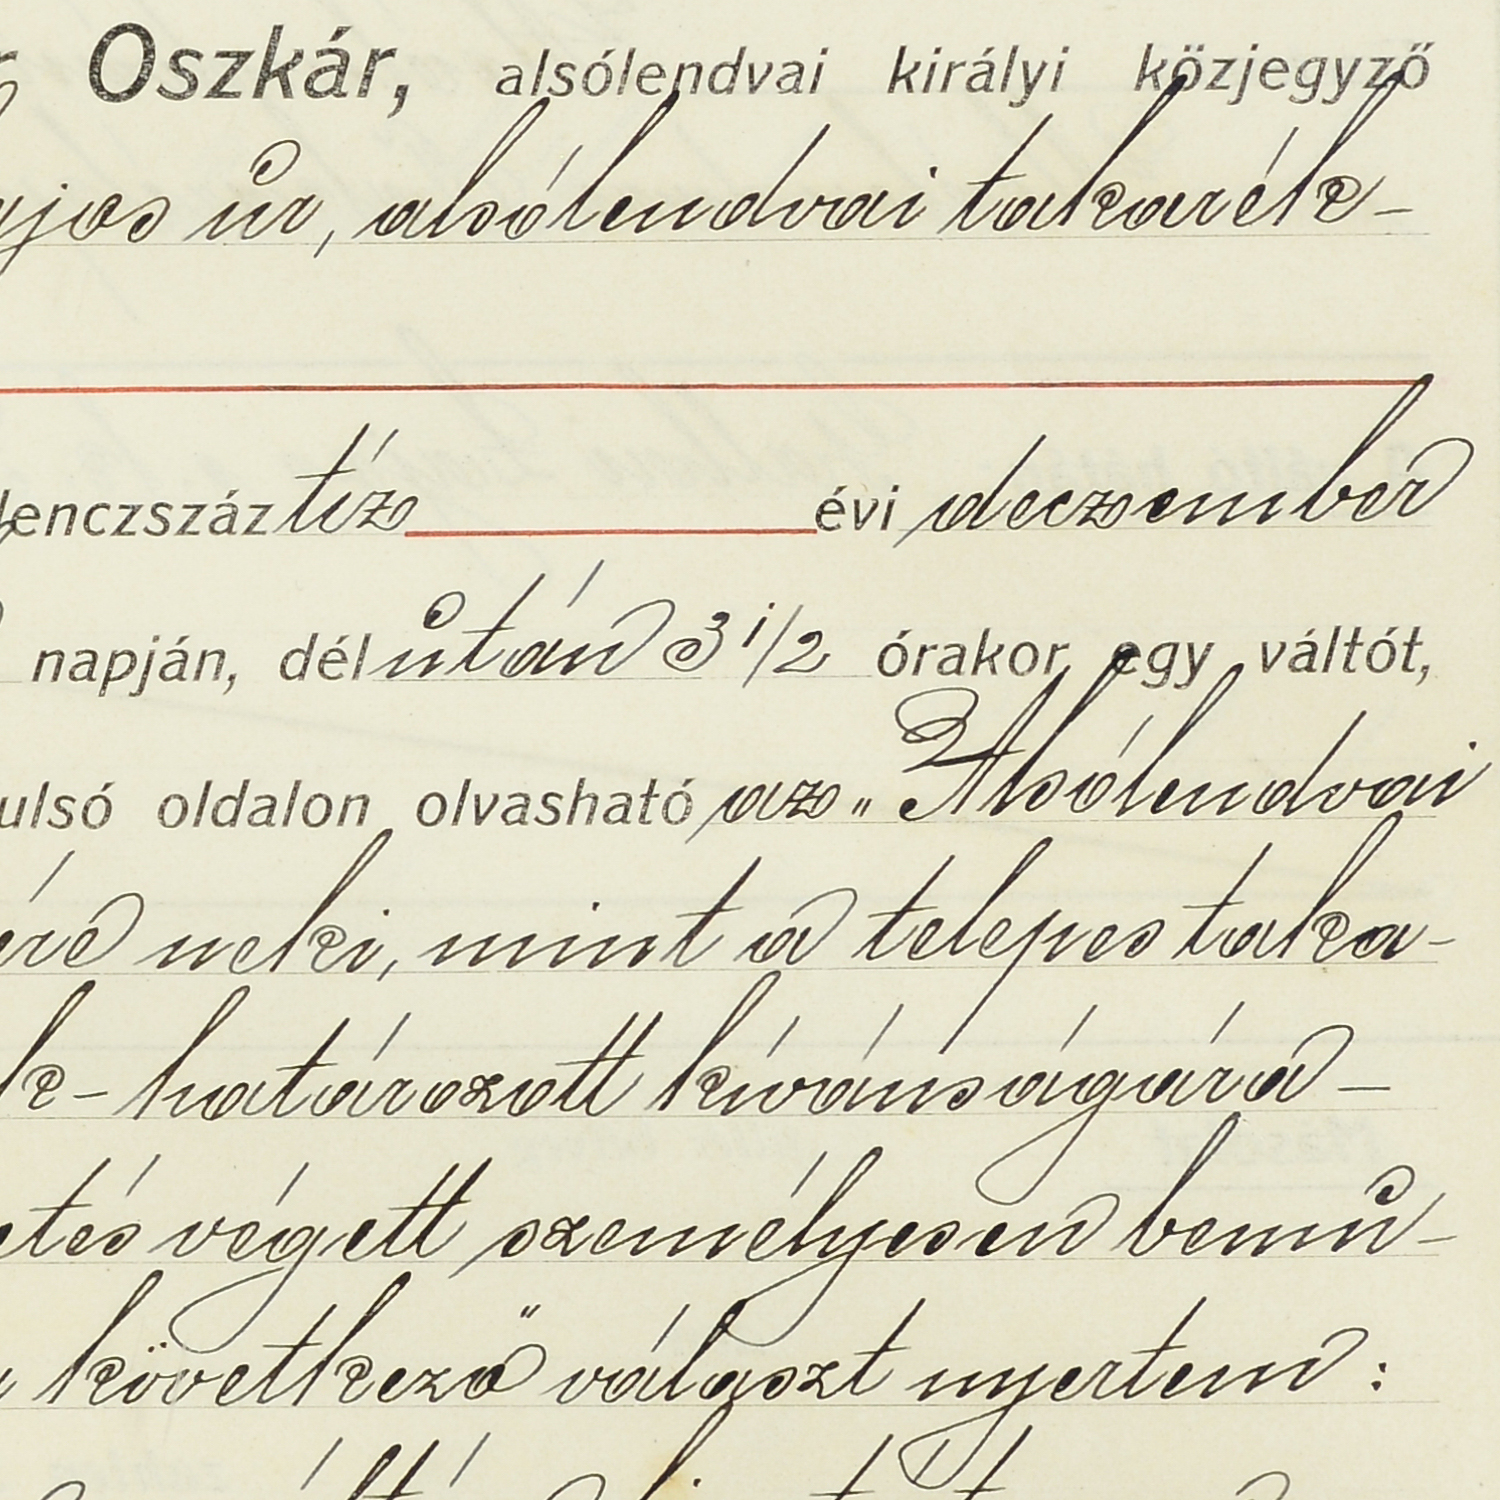 Oszkár, alsólendvai királyi közjegyző
ajos úr, alsólendvai takarék-
lenczszáz tíz évi deczember
napján, dél után 3 1/2 órakor egy váltót,
ulsó oldalon olvasható az „Alsólendvai
ére neki, mint a telepes taka-
k - határozott kívánságára -
etés végett személyesen bemu-
következő választ nyertem: